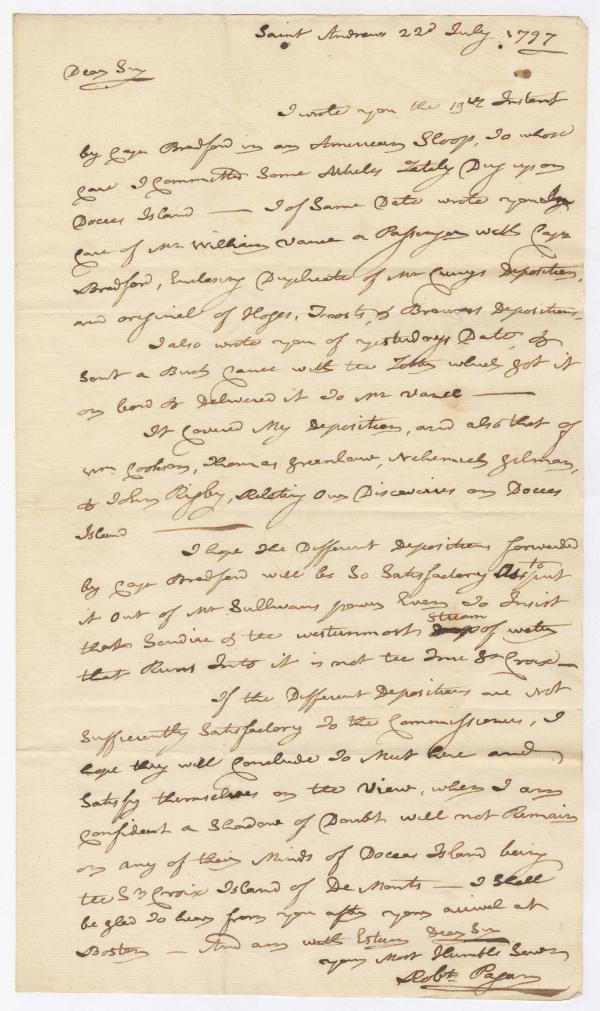 Saint Andrews 22d July 1797
Dear Sir
I wrote you the 19th Instant
by Capn Bradford in an American Sloop, To whose
Care I Committed Some Articles Lately Dug up on
Docees Island — I of Same Date wrote you
Care of Mr William Vance a Passenger with Capn
Bradford, Enclosing Duplicate of Mr Currys Deposition,
and original of Hoges, Frosts, & Browns Depositions.
I also wrote you of yesterdays Date, &
Sent a Birch Canoe with the Letter which got it
on bord & Delivered it To Mr Vance —
It Covered My Deposition, and also that of
Wm Cookson, Thomas Greenlaw, Nehemiah Gilman,
& John Rigby, Relating Our Discoveries on Docees
Island —
I hope the Different Depositions forwarded
by Capn Bradford will be So Satisfactory As to put
it Out of Mr Sullivans power Even To Insist
that Scudiac & the westernmost Stream of water
that Runs Into it is not the True St Croix —
If the Different Depositions are Not
Sufficiently Satisfactory To the Commissioners, I
hope they will Conclude To Meet here and
Satisfy themselves on the View, when I am
Confident a Shadow of Doubt will not Remain
on any of their Minds of Docees Island being
the St Croix Island of De Monts — I Shall
be glad To hear from you after your arrival at
Boston — And am with Esteem Dear Sir
your Most Humble Servn
Robt Pagan